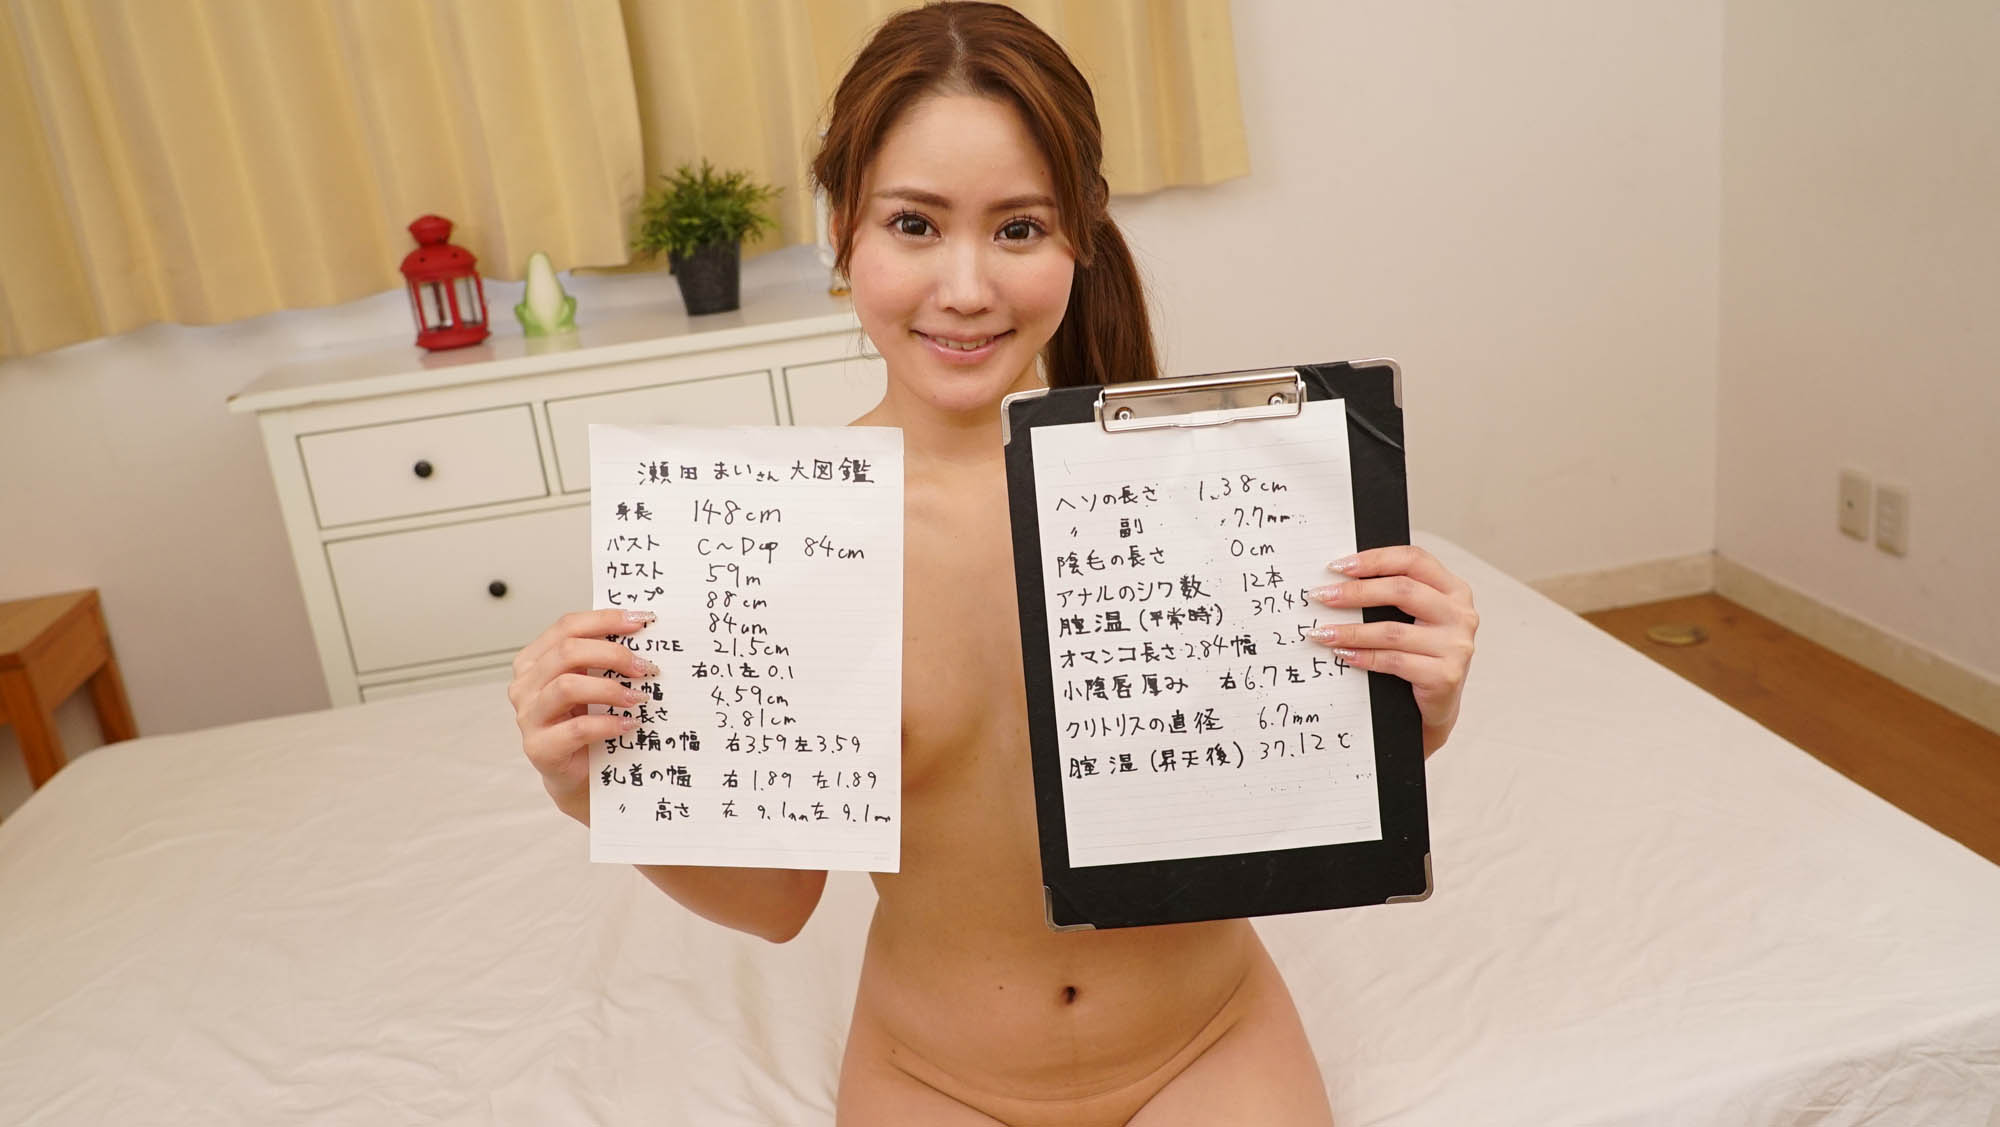 瀬田まいさん大図鑑
身長 148cm
バスト C〜Dcup 84cm
ウエスト 59m
ヒップ 88cm
84cm
SIZE 21.5cm
右0.1左0.1
幅 4.59cm
の長さ 3.81cm
乳輪の幅 右3.59左3.59
乳首の幅 右1.89 左1.89
〃 高さ 右9.1mm左9.1mm
ヘソの長さ 1.38cm
〃 副 7.7mm
陰毛の長さ 0cm
アナルのシワ数 12本
膣温(平常時) 37.45
オマンコ長さ2.84幅 2.5
小陰唇厚み 右6.7左5.4
クリトリスの直径 6.7mm
膣温(昇天後) 37.12℃